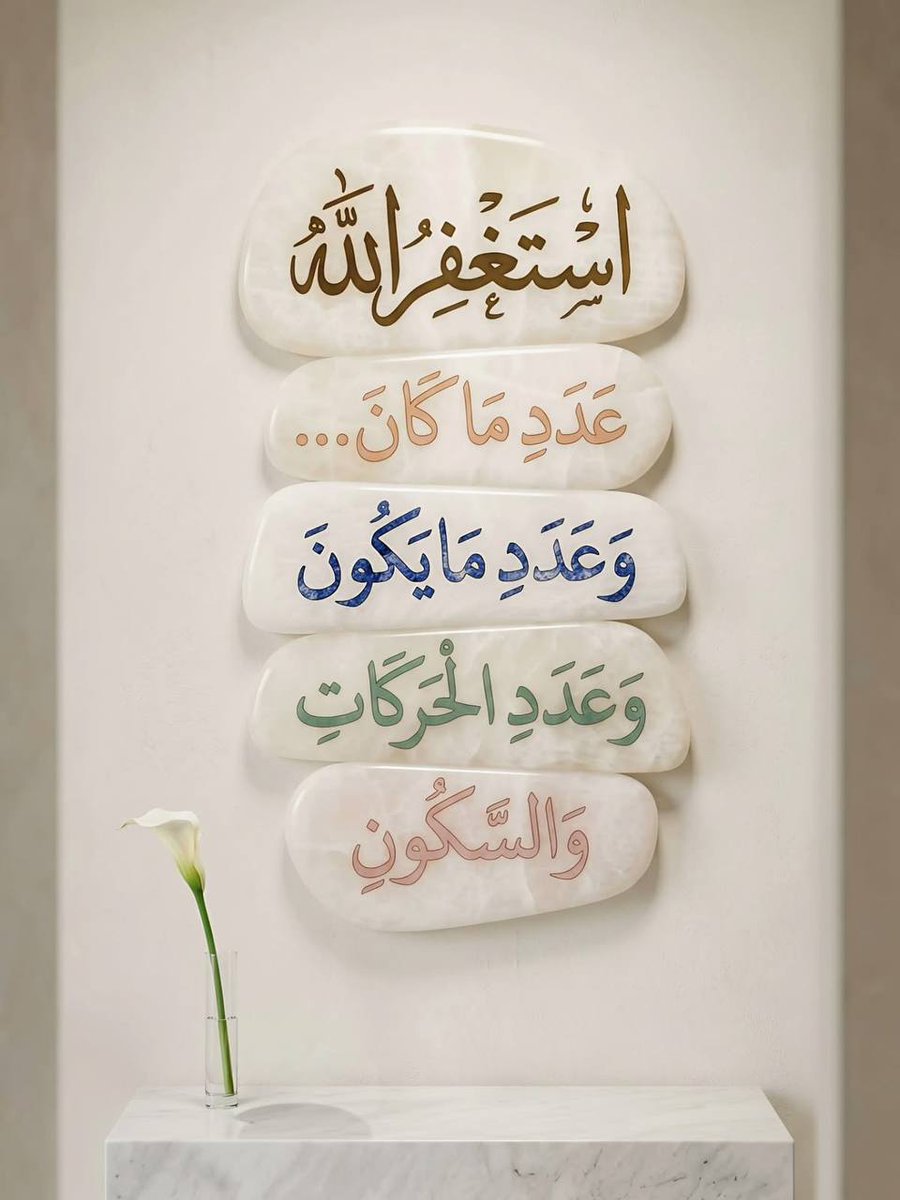 اسْتَغْفِرُ اللهُ
عَدَدِ مَا كَانَ...
وَعَدَدِ مَا يَكُونَ
وَعَدَدِ الْحَرَكَاتِ
وَالسَّكُونِ